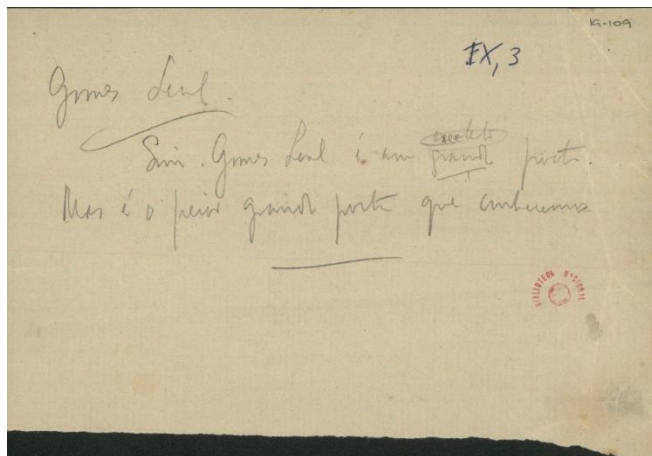 19-109
IX, 3
Gomes Leal.
Sim. Gomes Leal é um grande poeta.
Mas é o peior grande poeta que conhecemos
BIBLIOTECA NACIONAL